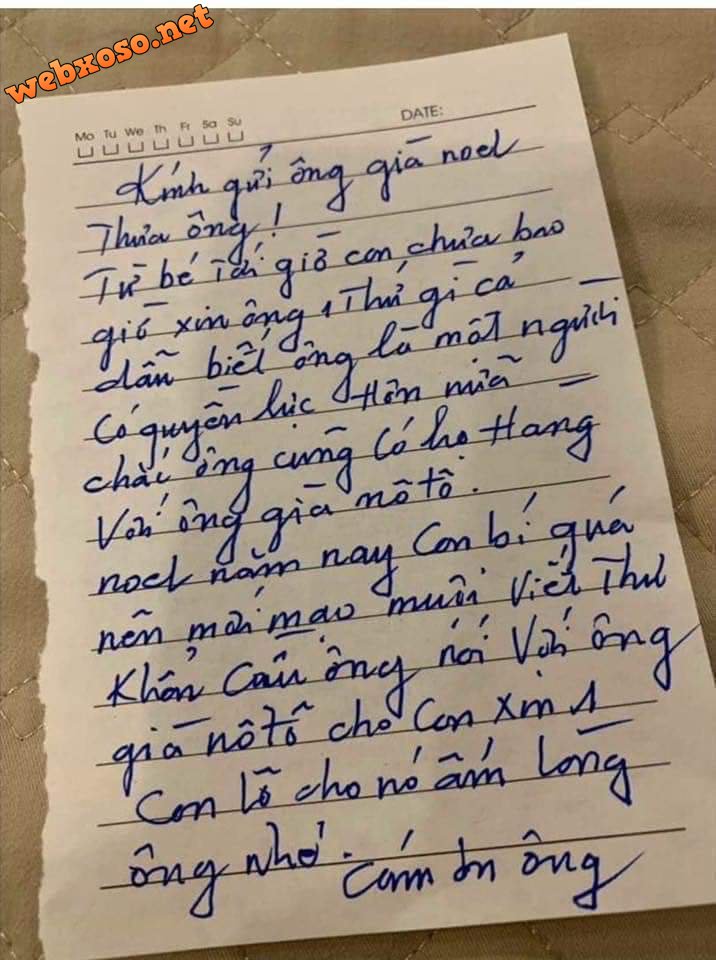 webxoso.net
Mo Tu We Th Fr Sa Su
DATE:
Kính gửi ông già noel
Thưa ông!
Từ bé tới giờ con chưa bao
giờ xin ông 1 thứ gì cả
dẫu biết ông là một người
có quyền lực Hơn nữa
chắc ông cũng có họ Hàng
Với ông già nôtô.
noel năm nay Con bí quá
nên mới mạo muội viết Thư
Khẩn Cầu ông nói Với ông
già nôtô cho Con xin 1
Con lô cho nó ấm lòng
ông nhớ. Cám ơn ông